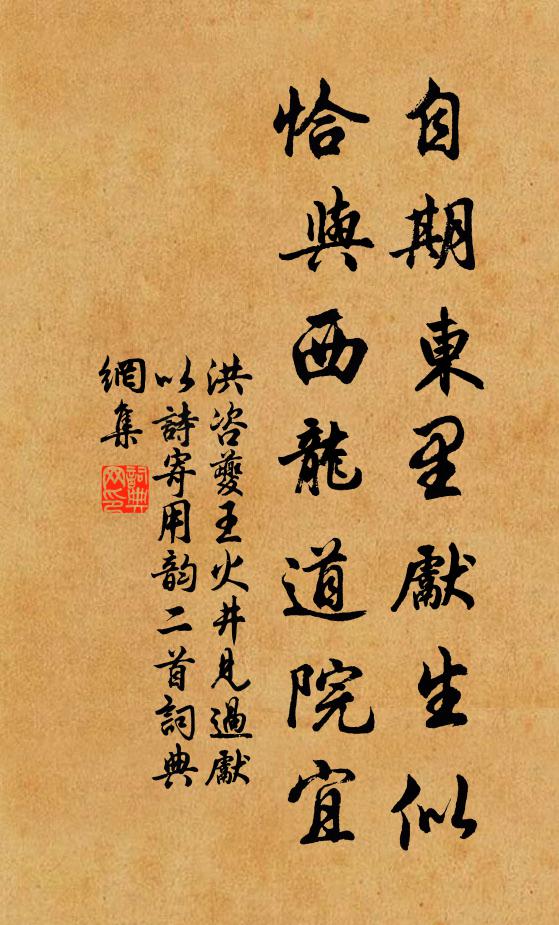 自期東里獻生似
恰與西龍道院宜
洪咨夔王火井見過獻
以詩寄用韵二首詞典
網集
詞典網印